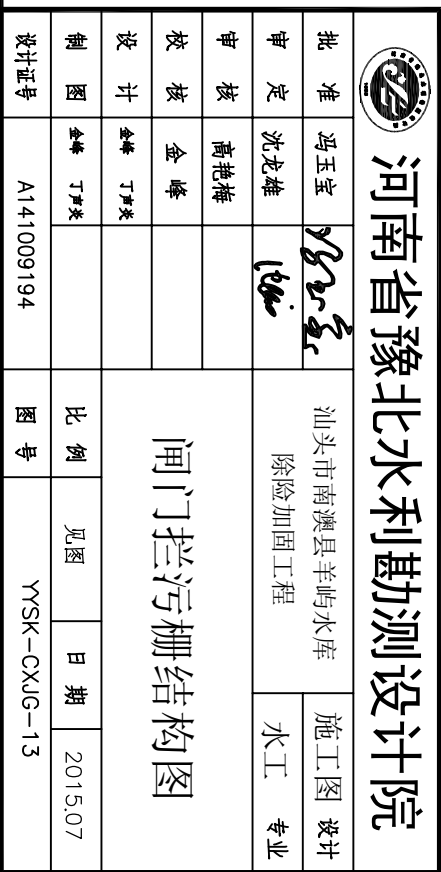 河南省豫北水利勘测设计院
批 准 冯玉宝 汕头市南澳县羊屿水库 施工图 设计
审 定 沈龙雄 除险加固工程 水工 专业
审 核 高艳梅
校 核 金 峰 闸门拦污栅结构图
设 计 金峰 丁声炎
制 图 金峰 丁声炎 比 例 见图 日 期 2015.07
设计证号 A141009194 图 号 YYSK-CXJG-13